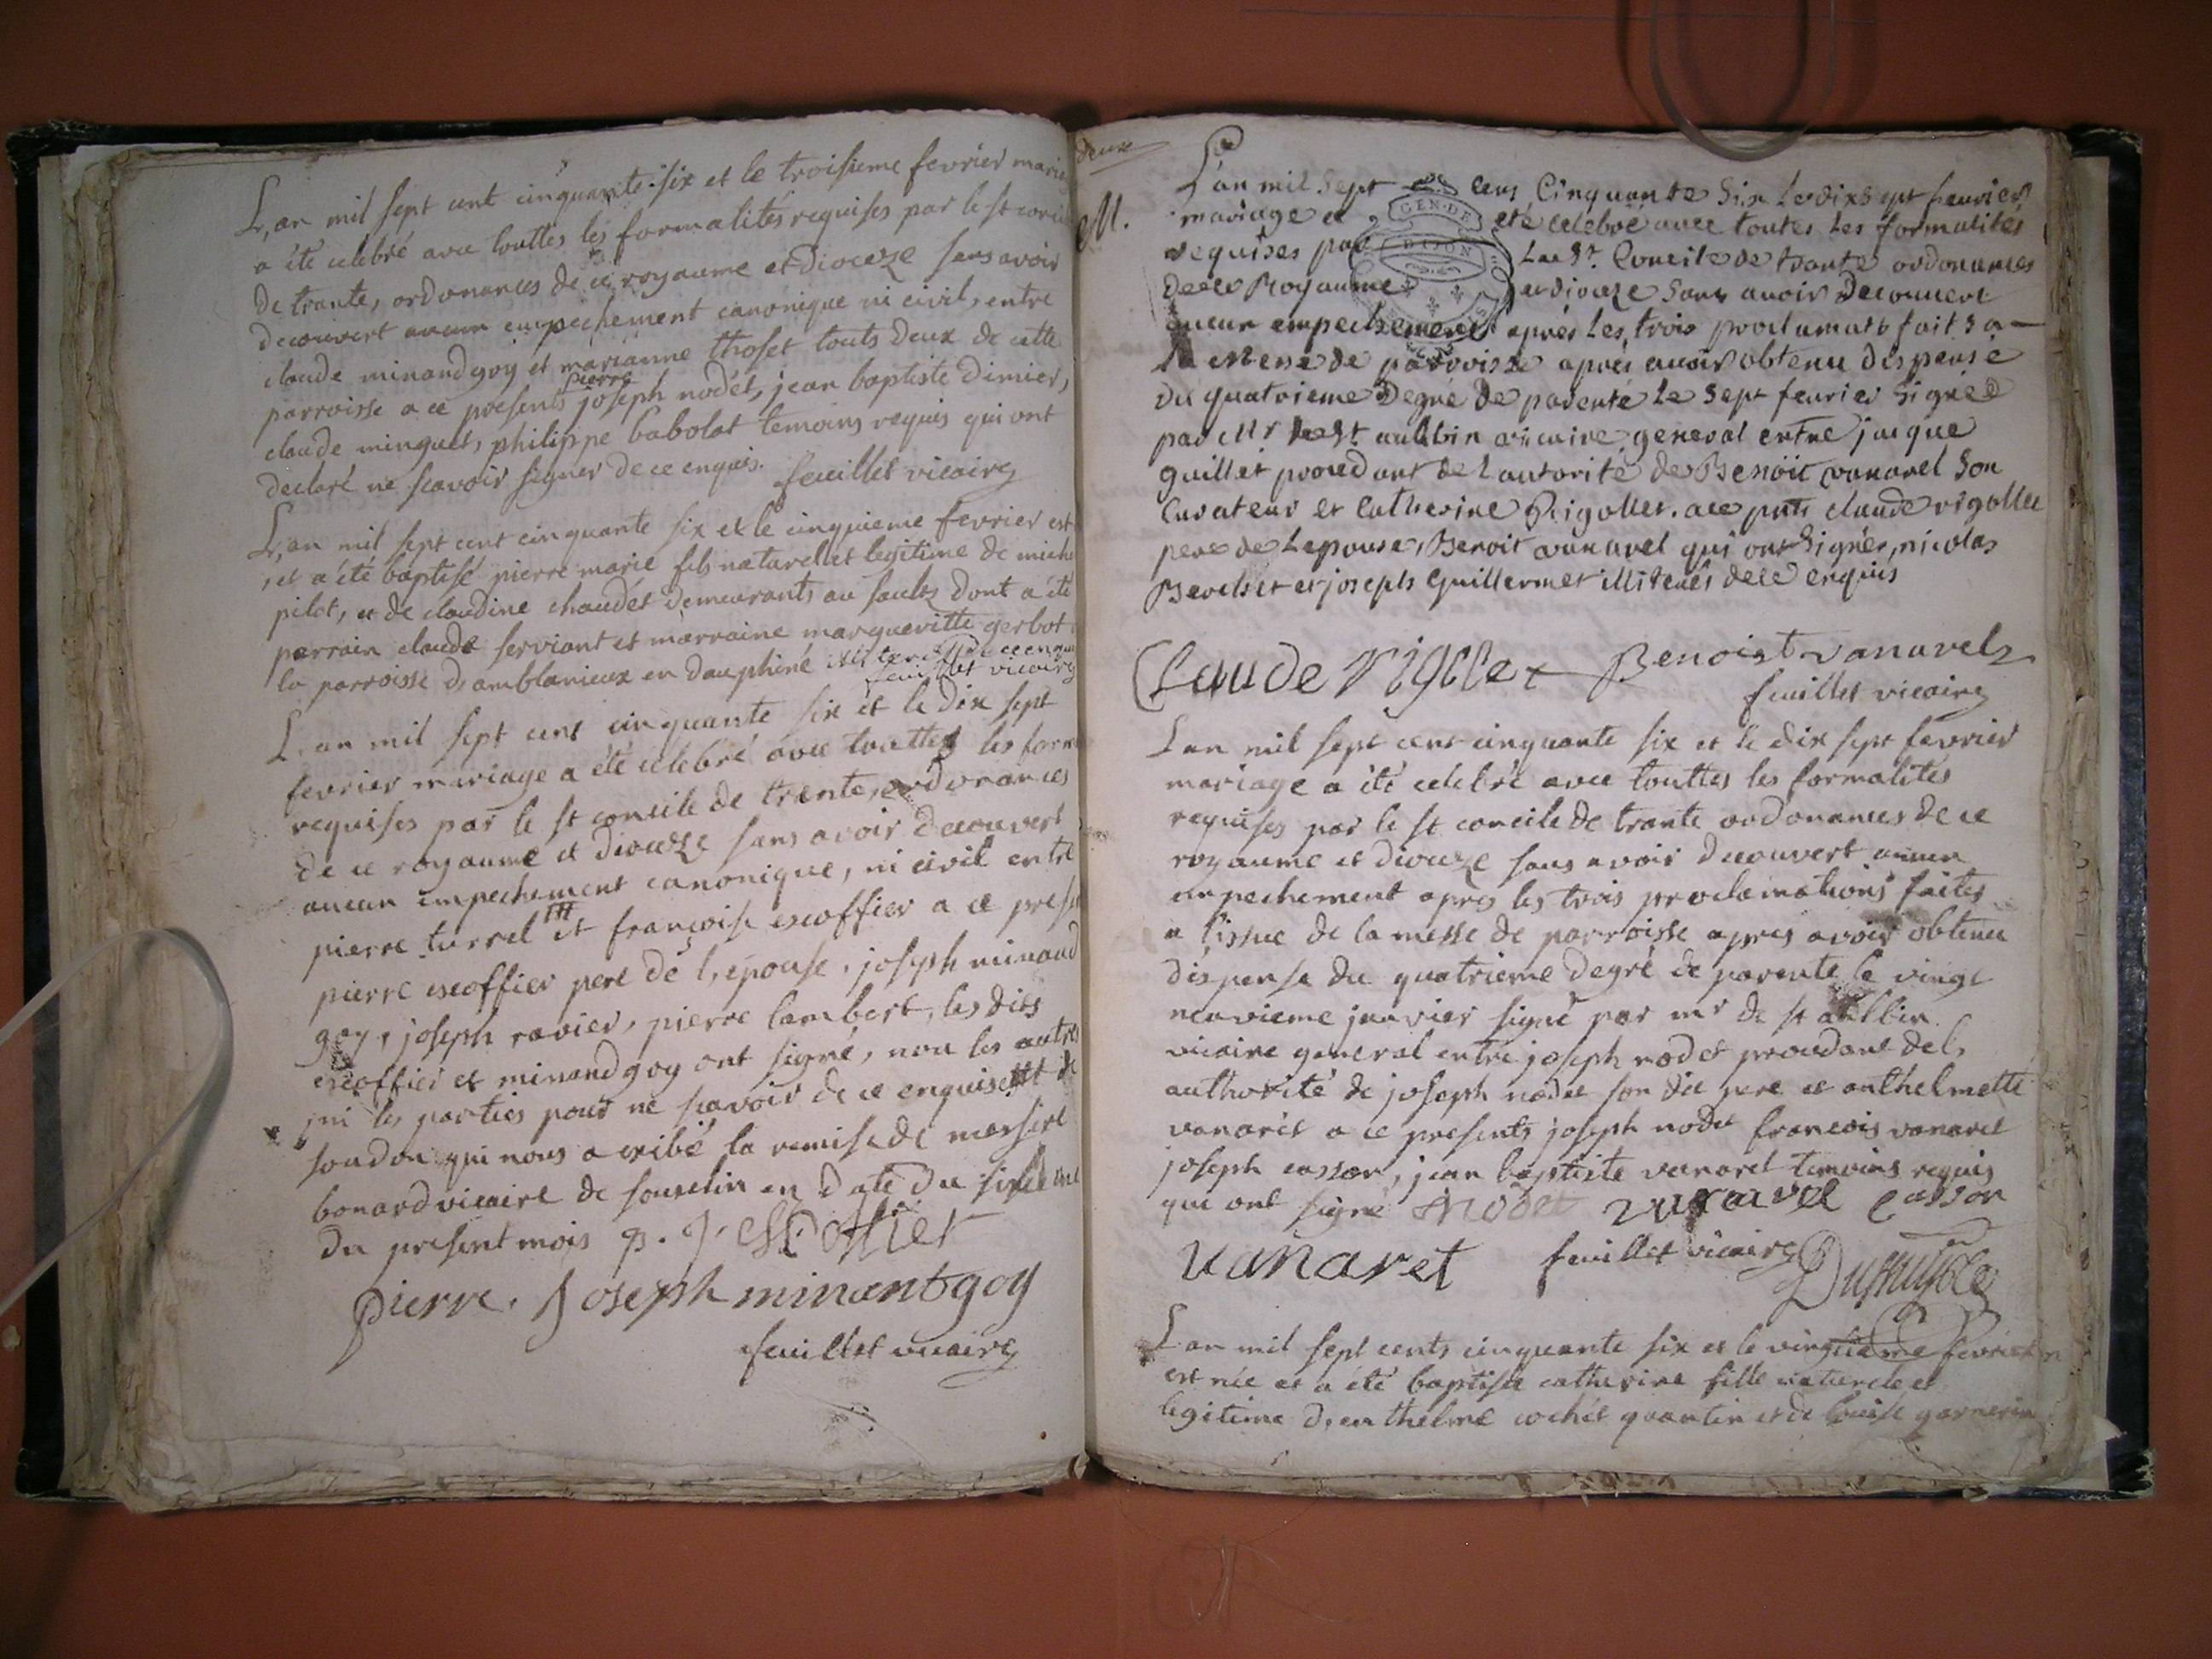 L,an mil sept cent cinquante six et le troisieme fevrier mariage
a été celebré avec touttes les formalités requises par le st concile
de trante, ordonances de ce royaume et dioceze sans avoir
decouvert aucun empechement canonique ni civil, entre
claude minandgoy et marianne thoset touts deux de cette
parroisse a ce presents pierre joseph nodet, jean baptiste dimier,
claude minguet, philippe babolat temoins requis qui ont
declaré ne scavoir signer de ce enquis. feuillet vicaire
L,an mil sept cent cinquante six et le cinquieme fevrier est
, et a été baptisé pierre marie fils naturel et legitime de miche
pilot, et de claudine chaudet demeurants au saults dont a été
parrain claude serviant et marraine margueritte gerbot
la parroisse d,amblanieux en dauphiné de ce enquis
feuillet vicaire
L,an mil sept cent cinquante six et le dix sept
fevrier mariage a été celebré avec touttes les form
requises par le st concile de trente, ordonances
de ce royaume et dioceze sans avoir decouvert
aucun empechement canonique, ni civil entre
pierre turrel et françoise escoffier a ce prese
pierre escoffier pere de l,epouse, joseph minand
goy, joseph ravier, pierre lambert, les dits
escoffier et minandgoy ont signé, non les autres
ni les parties pour ne scavoir de ce enquis et de
soudon qui nous a exibé la remise de messire
bonard vicaire de souselin en date du
du present mois p. j. escoffier
pierre. Joseph minantgoy
feuillet vicaire
deux
M.
L'an mil sept cens Cinquante Six Le dixsept feurier
mariage a eté celebré avec toutes Les formalités
requises par Le St. Concile de trante ordonances
de ce Royaume et dioceze sans avoir Decouuert
aucun empechement aprés Les trois proclamats faits a
la Messe de parroisse aprés auoir obtenu dispense
du quatrieme Degré de parenté Le sept feurier signée
par Mr de St aulbin vicaire general entre jacque
guillet procedant de Lautorité de Benoit vanarel son
Curateur et Catherine Rigollet. a ce pnts claude rigollet
pere de Lepouse, Benoit vanarel qui ont signés, nicolas
Berchet et joseph Guillermet illiterés de ce enquis
Claude rigollet Benoist vanarel
feuillet vicaire
L an mil sept cent cinquante six et le dix sept fevrier
mariage a été celebré avec touttes les formalités
requises par le st concile de trante ordonances de ce
royaume et dioceze sans avoir decouvert aucun
empechement aprés les trois proclamations faites
a l'issue de la messe de parroisse apres avoir obtenu
dispense du quatrieme degré de parenté le vingt
neuvieme janvier signé par mr de st aulbin
vicaire general entre joseph nodet procedant de l,
authorité de joseph nodet son dit pere et anthelmette
vanaret a ce presents joseph nodet francois vanaret
joseph casson, jean baptiste vanaret temoins requis
qui ont signé Nodet vanaret casson
vanaret feuillet vicaire
L an mil sept cents cinquante six et le vingtieme fevrier
est née et a été baptisée catherine fille naturelle et
legitime d,anthelme cochet quantin et de louise garnerin
GEN·DE
DIJON